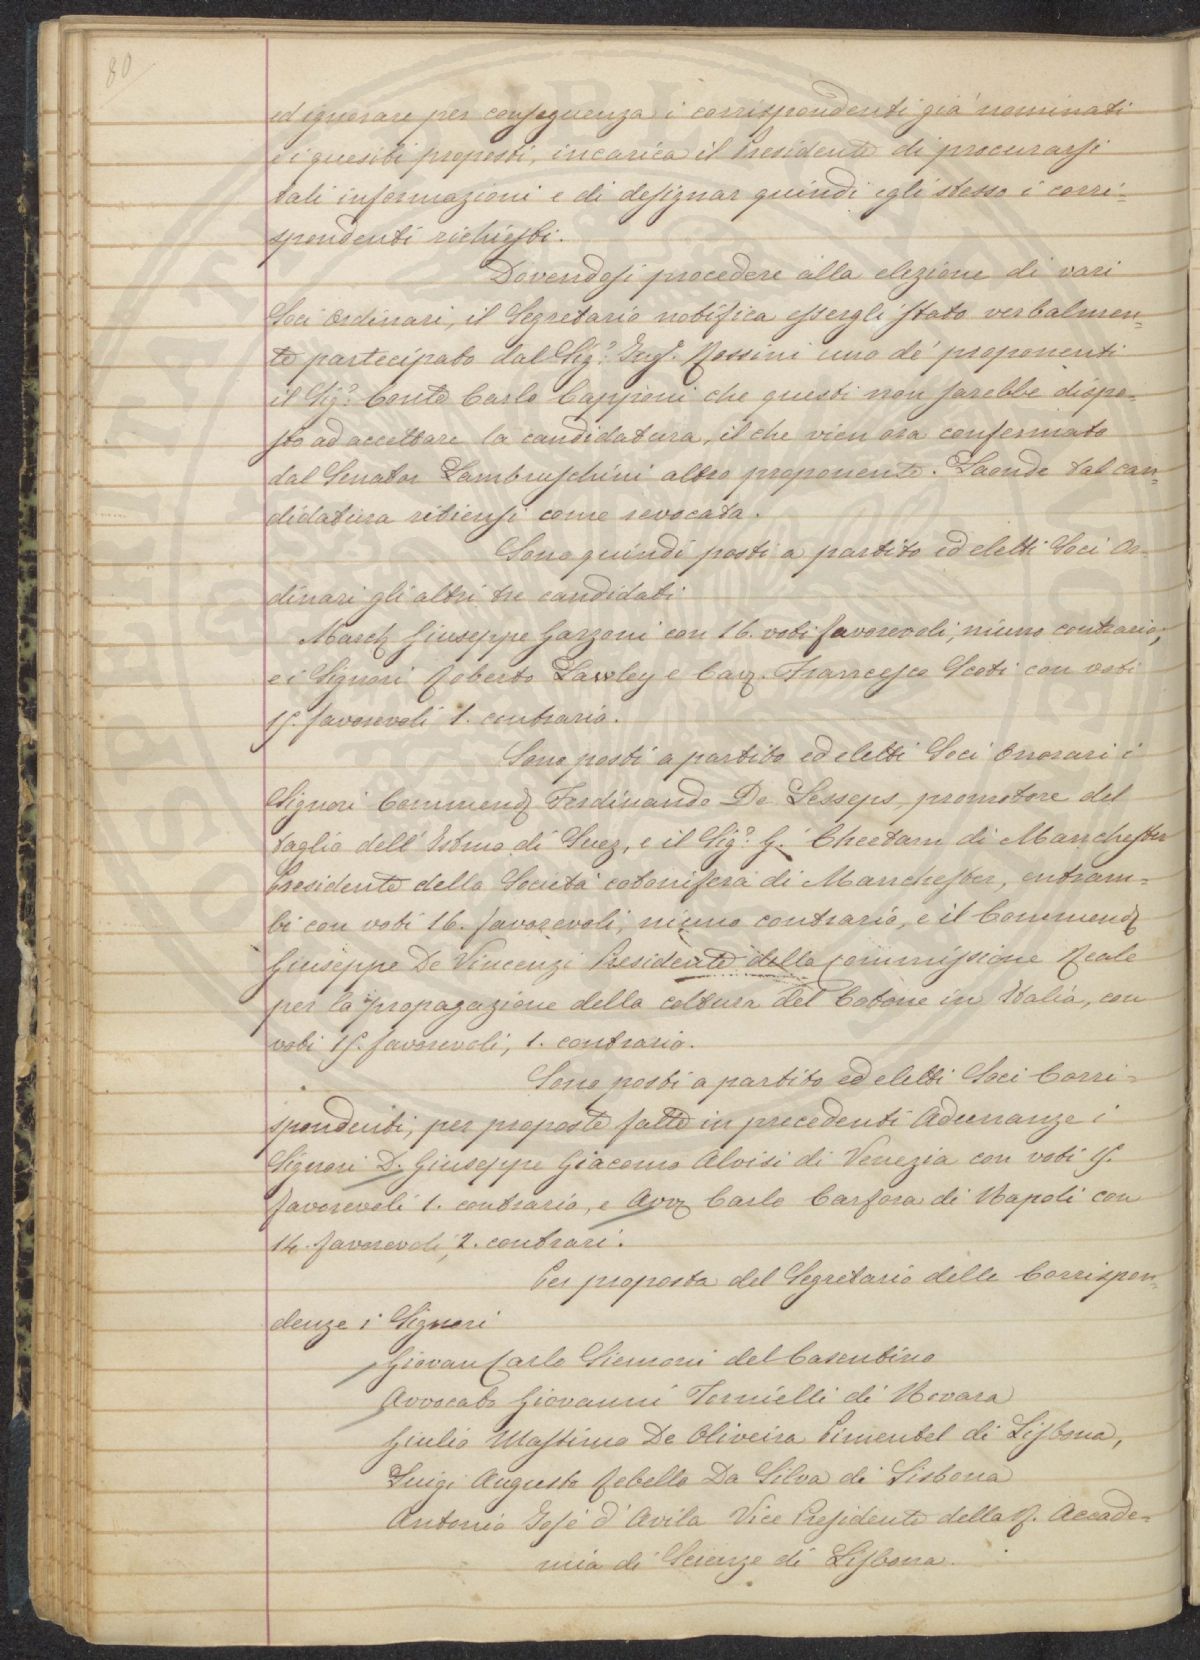 80
ed ignorare per conseguenza i corrispondenti già nominati
e i quesiti proposti, incarica il Presidente di procurarsi
tali informazioni e di designar quindi egli stesso i corri=
spondenti richiesti.
Dovendosi procedere alla elezione di vari
Soci Ordinari, il Segretario notifica essergli stato verbalmen=
te partecipato dal Sigr. Ingr. Rossini uno de' proponenti
il Sigr. Conte Carlo Capponi che questi non sarebbe dispo=
sto ad accettare la candidatura, il che vien ora confermato
dal Senator Lambruschini altro proponente. Laonde tal can=
didatura ritiensi come revocata.
Sono quindi posti a partito ed eletti Soci Or=
dinari gli altri tre candidati
March Giuseppe Garzoni con 16. voti favorevoli, niuno contrario;
e i Signori Roberto Lawley e Cav. Francesco Scoti con voti
15. favorevoli 1. contrario.
Sono posti a partito ed eletti Soci Onorari i
Signori Commend Ferdinando De Lesseps, promotore del
taglio dell'Istmo di Suez, e il Sigr. G. Cheetam di Manchester
Presidente della Società cotonifera di Manchester, entram=
bi con voti 16. favorevoli, niuno contrario, e il Commend
Giuseppe De Vincenzi Presidente della Commissione Reale
per la propagazione della coltura del Cotone in Italia, con
voti 15. favorevoli, 1. contrario.
Sono posti a partito ed eletti Soci Corri=
spondenti, per proposte fatte in precedenti Adunanze i
Signori D. Giuseppe Giacomo Aloisi di Venezia con voti 15.
favorevoli 1. contrario, e Avv Carlo Carfora di Napoli con
14. favorevoli, 2. contrari.
Per proposta del Segretario delle Corrispon=
denze i Signori
Giovan Carlo Siemoni del Casentino
Avvocato Giovanni Tornielli di Novara
Giulio Massimo De Oliveira Pimentel di Lisbona,
Luigi Augusto Rebello Da Silva di Lisbona
Antonio José d'Avila Vice Presidente della R. Accade=
mia di Scienze di Lisbona.